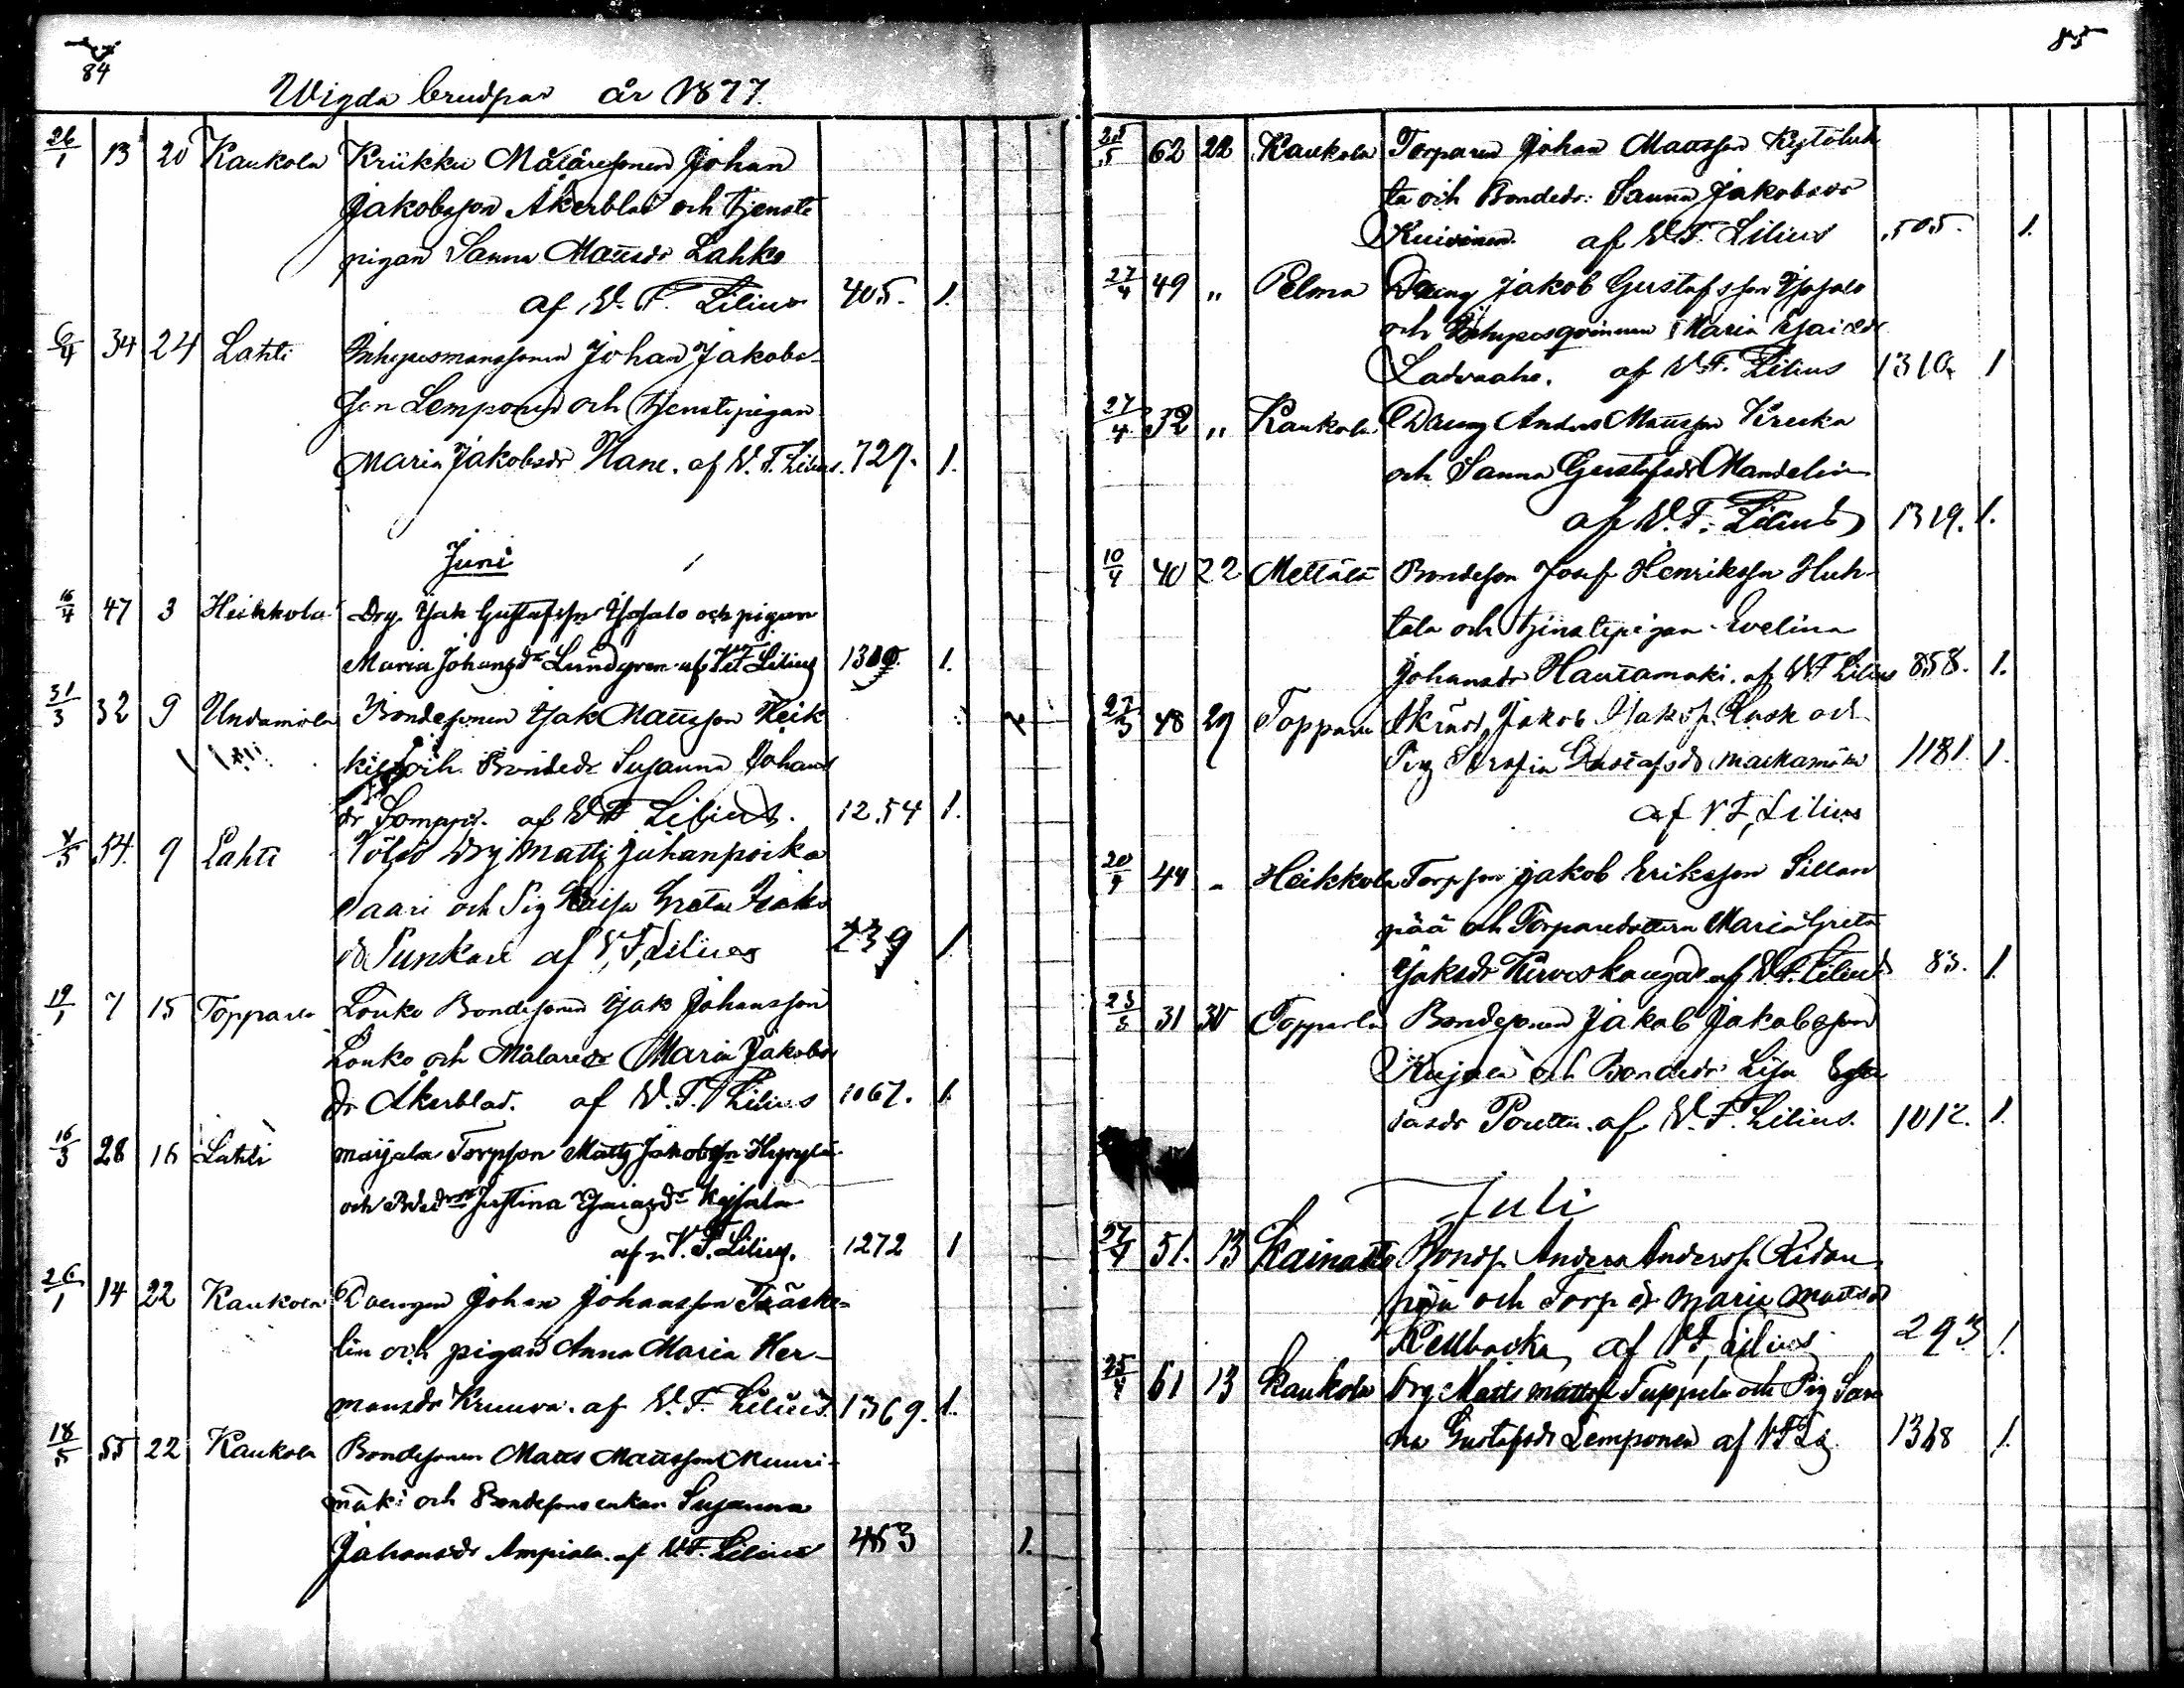 84
Wigda brudpar år 1877.
26/1 13 20 Kaukola Kriikku Målaresonen Johan
Jakobsson Åkerblad och tjenste
pigan Sanna Mattsdr Lahko
af V. F. Lilius 405. 1.
6/4 34 24 Lahti Inhysesmanssonen Johan Jakobs-
son Lemponen och tjenstepigan
Maria Jakobsdr Hane. af V. F. Lilius. 727. 1.
Juni
16/4 47 3 Heikkola Drg. Isak Gustafsson Isosalo och pigan
Maria Johansdr Lundgren af V. F. Lilius 1.
31/3 32 9 Bondesonen Isak Mattsson Heik
och Bondedr Susanna Johans
dr Somppi. af V. F. Lilius. 1254 1.
54. 9 Lahti Drg Matts Juhanpoika
Saari och Pig Kaisa Greta Isaks
dr Punkari af V. F. Lilius 239 1
19/1 7 15 Toppari Louko Bondesonen Isak Johansson
Louko och Målaredr Maria Jakobs
dr Åkerblad. af V. F. Lilius 1067. 1.
16/3 28 16 Lahti Torpson Matts Jakobsson Hyrylä
och Justina Esaiasdr
af V. F. Lilius. 1272 1
26/1 14 22 Kaukola Drengen Johan Johansson Träske-
lin och pigan Anna Maria Her-
mansdr Kruuva. af V. F. Lilius. 1369. 1.
18/5 55 22 Kaukola Bondesonen Matts Mattsson Muuri-
mäki och Bondesons enkan Susanna
Johansdr Ampiala. af V. F. Lilius 463 1.
85
22/5 62 22 Kaukola Torparen Johan Mattsson Kytöluh
ta och Bondedr: Sanna Jakobsdr
Kuivinen. af V. F. Lilius 505. 1.
27/4 49 " Pelma Dreng Jakob Gustafsson Isosalo
och Inhysesqvinnan Maria Esaiedr
af V. F. Lilius 1310. 1
27/4 32 " Kaukola Dreng Anders Mattsson Krekka
och Sanna Gustafsdr Mandelin
af V. F. Lilius 1319. 1.
10/4 40 22 Mettälä Bondeson Josef Henriksson Huh-
tala och tjenstepigan Evelina
Johansdr Hautamäki. af V. F. Lilius 858. 1.
27/3 48 29 Toppari Jakob och
Pig Serafia Gustafsdr 1181. 1.
af V. F. Lilius
20/4 44 " Heikkola Torpson Jakob Eriksson Sillan
pää och Torparedottern Maria Greta
Isaksdr Kirveskangas af V. F. Lilius 83. 1.
31 30 Topparla Bondesonen Jakob Jakobsson
Kujala och Bondedr Lisa
Poutta. af V. F. Lilius. 1012. 1.
Juli
27/4 51. 13 Kainasto Bonds. Anders Anderss. Ridan
pää och Torp dr Maria Mattsd
Kellbacka af V. F. Lilius 293 1.
25/4 61 13 Kaukola Drg Matts Mattss Tuppela och Pig San
na Gustafsdr Lemponen af V F L. 1368 1.